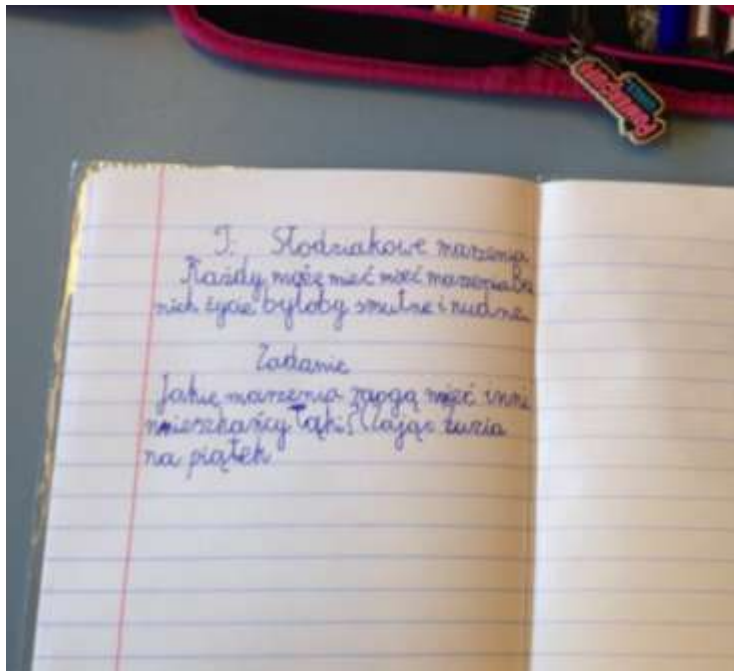 T. Słodziakowe marzenia
Każdy może meć mieć marzenia Bez
nich życie byłoby smutne i nudne.
Zadanie
Jakie marzenia mogą mieć inni
mieszkańcy łąki? (zając żuzia
na piątek